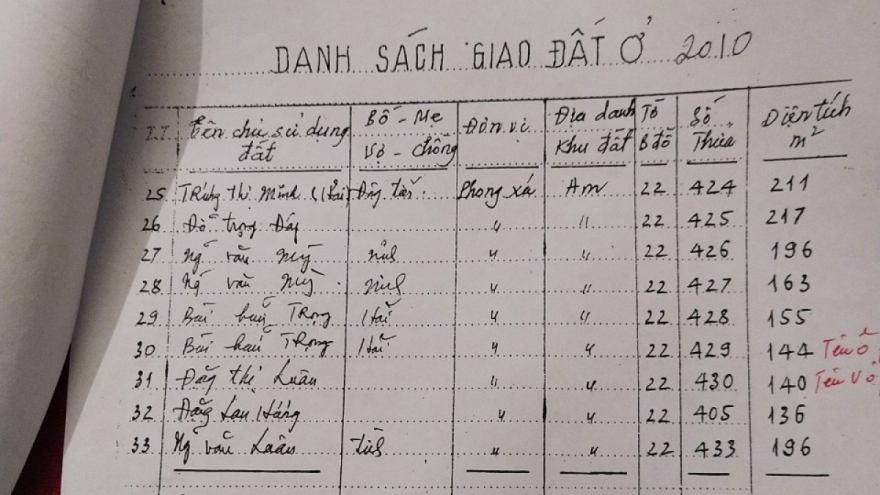 DANH SÁCH GIAO ĐẤT Ở 2010
T.T. Tên chủ sử dụng đất Bố - Mẹ Vợ - Chồng Đơn vị Địa danh Khu đất Tờ B đồ Số Thửa Diện tích m²
25 Thị Minh (Hải) Phong xá Am 22 424 211
26 Đỗ Trọng Đáp " " 22 425 217
27 Ngô Văn Mỹ " " 22 426 196
28 Ngô Văn Mỹ " " 22 427 163
29 Bùi Trọng Hải " " 22 428 155
30 Bùi Trọng Hải " " 22 429 144 Tên ô
31 Đặng Thị Luân " " 22 430 140 Tên Vợ
32 Đặng Lan Hàng " " 22 405 136
33 Ngô Văn Luân " " 22 433 196